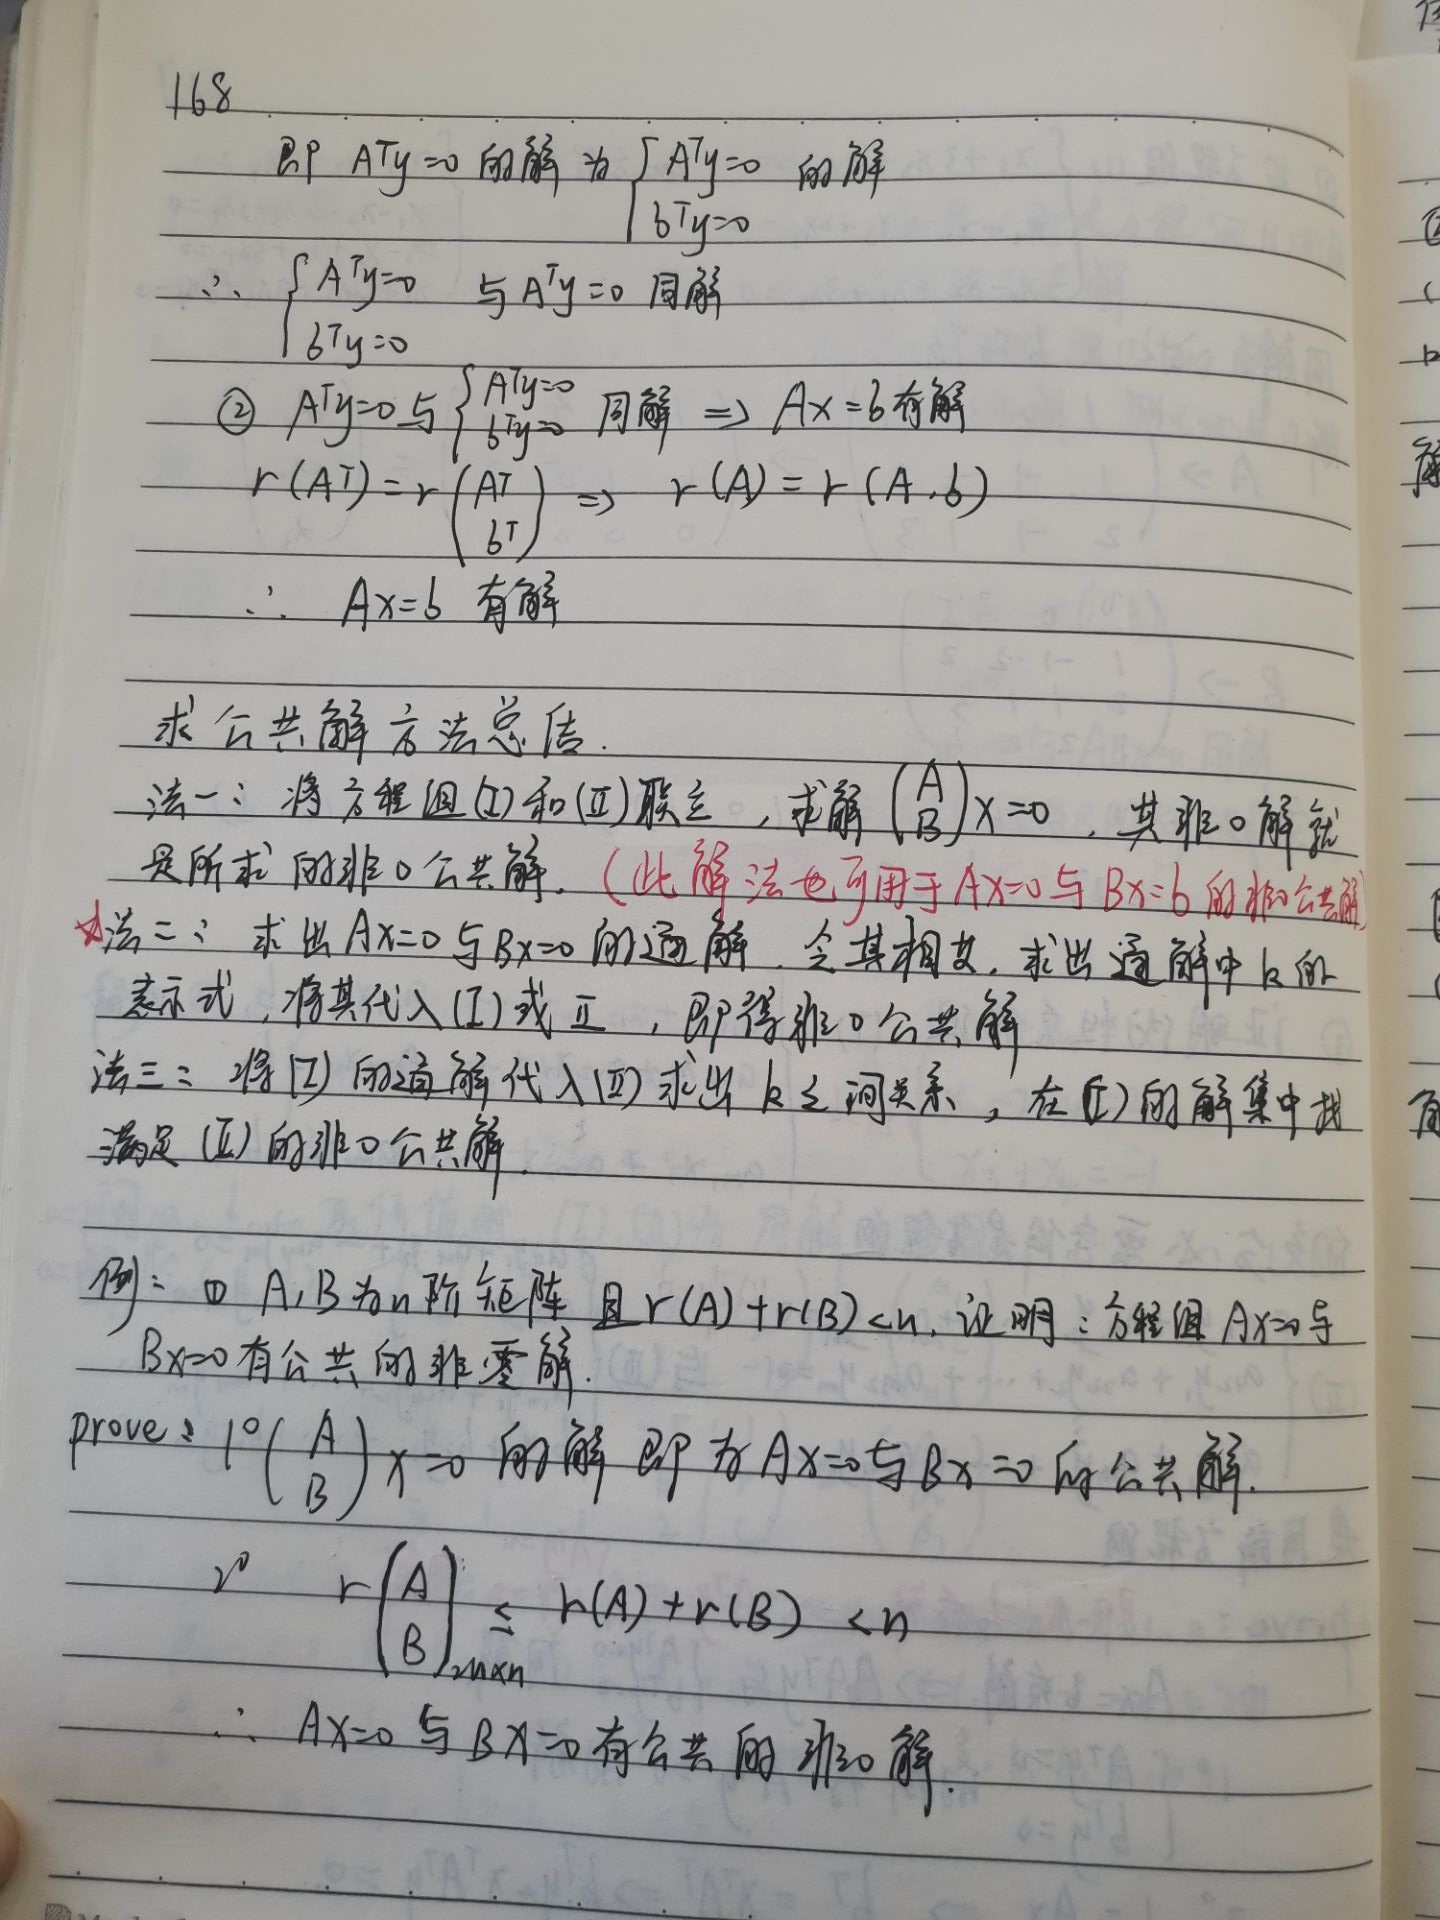 168
即 Aᵀy=0 的解为 { Aᵀy=0 的解
bᵀy=0
∴ { Aᵀy=0 与 Aᵀy=0 同解
bᵀy=0
② Aᵀy=0 与 { Aᵀy=0 bᵀy=0 同解 ⇒ Ax=b有解
r(Aᵀ)=r(Aᵀ bᵀ) ⇒ r(A)=r(A,b)
∴ Ax=b 有解
求公共解方法总结.
法一:将方程组(I)和(II)联立,求解(A B)x=0,其非0解就
是所求的非0公共解.(此解法也可用于Ax=0与Bx=b的非0公共解)
☆法二:求出Ax=0与Bx=0的通解.令其相等,求出通解中k的
表示式,将其代入(I)或II,即得非0公共解
法三:将(I)的通解代入(II)求出k之间关系,在(I)的解集中找
满足(II)的非0公共解.
例:① A,B为n阶矩阵且r(A)+r(B)<n,证明:方程组Ax=0与
Bx=0有公共的非零解.
prove: 1°(A B)x=0 的解即为Ax=0与Bx=0的公共解.
2° r(A B)2n×n ≤ r(A)+r(B) <n
∴ Ax=0与Bx=0有公共的非0解.